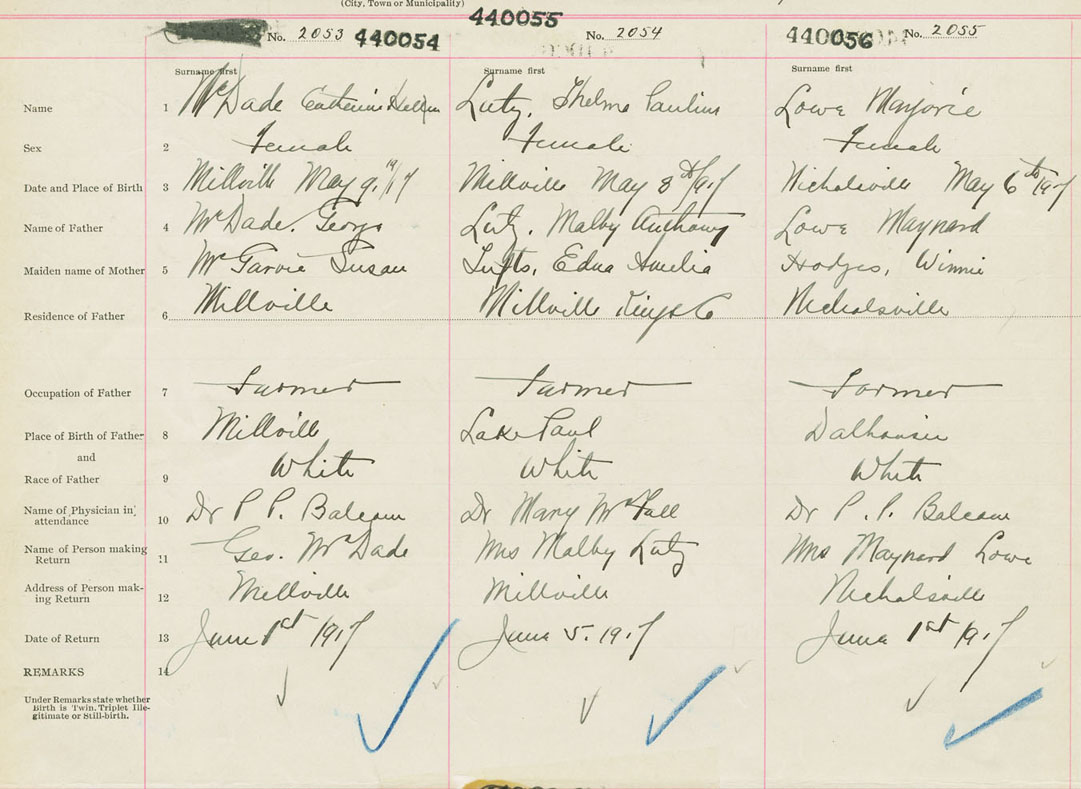 (City, Town or Municipality)
No. 2053 440054
440055
No. 2054
440056 No. 2055
Surname first Surname first Surname first
Name 1 McDade Catherine Lutz, Thelma Pauline Lowe Marjorie
Sex 2 Female Female Female
Date and Place of Birth 3 Millville May 9, 1917 Millville May 8th 1917 Nicholsville May 6th 1917
Name of Father 4 McDade. George Lutz, Malby Anthony Lowe Maynard
Maiden name of Mother 5 McGarvie Susan Tufts, Edna Amelia Hodges, Winnie
Residence of Father 6 Millville Millville Kings Co Nicholsville
Occupation of Father 7 Farmer Farmer Farmer
Place of Birth of Father 8 Millville Lake Paul Dalhousie
and
Race of Father 9 White White White
Name of Physician in attendance 10 Dr P P. Balcom Dr Mary McFall Dr P. P. Balcom
Name of Person making Return 11 Geo. McDade Mrs Malby Lutz Mrs Maynard Lowe
Address of Person mak-
ing Return 12 Millville Millville Nicholsville
Date of Return 13 June 1st 1917 June 5. 1917 June 1st 1917
REMARKS 14
Under Remarks state whether
Birth is Twin, Triplet Ille-
gitimate or Still-birth.